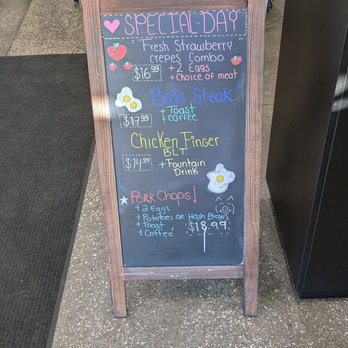 SPECIAL DAY
Fresh Strawberry
crepes Combo
$16.99
+ 2 Eggs
+ Choice of meat
Baja Steak
$17.99
+ Toast
+ coffee
Chicken Finger
BLT
$14.99
+ Fountain
Drink
Pork Chops!
+ 2 Eggs
+ Potatoes OR Hash Brown
+ Toast
+ Coffee
$18.99